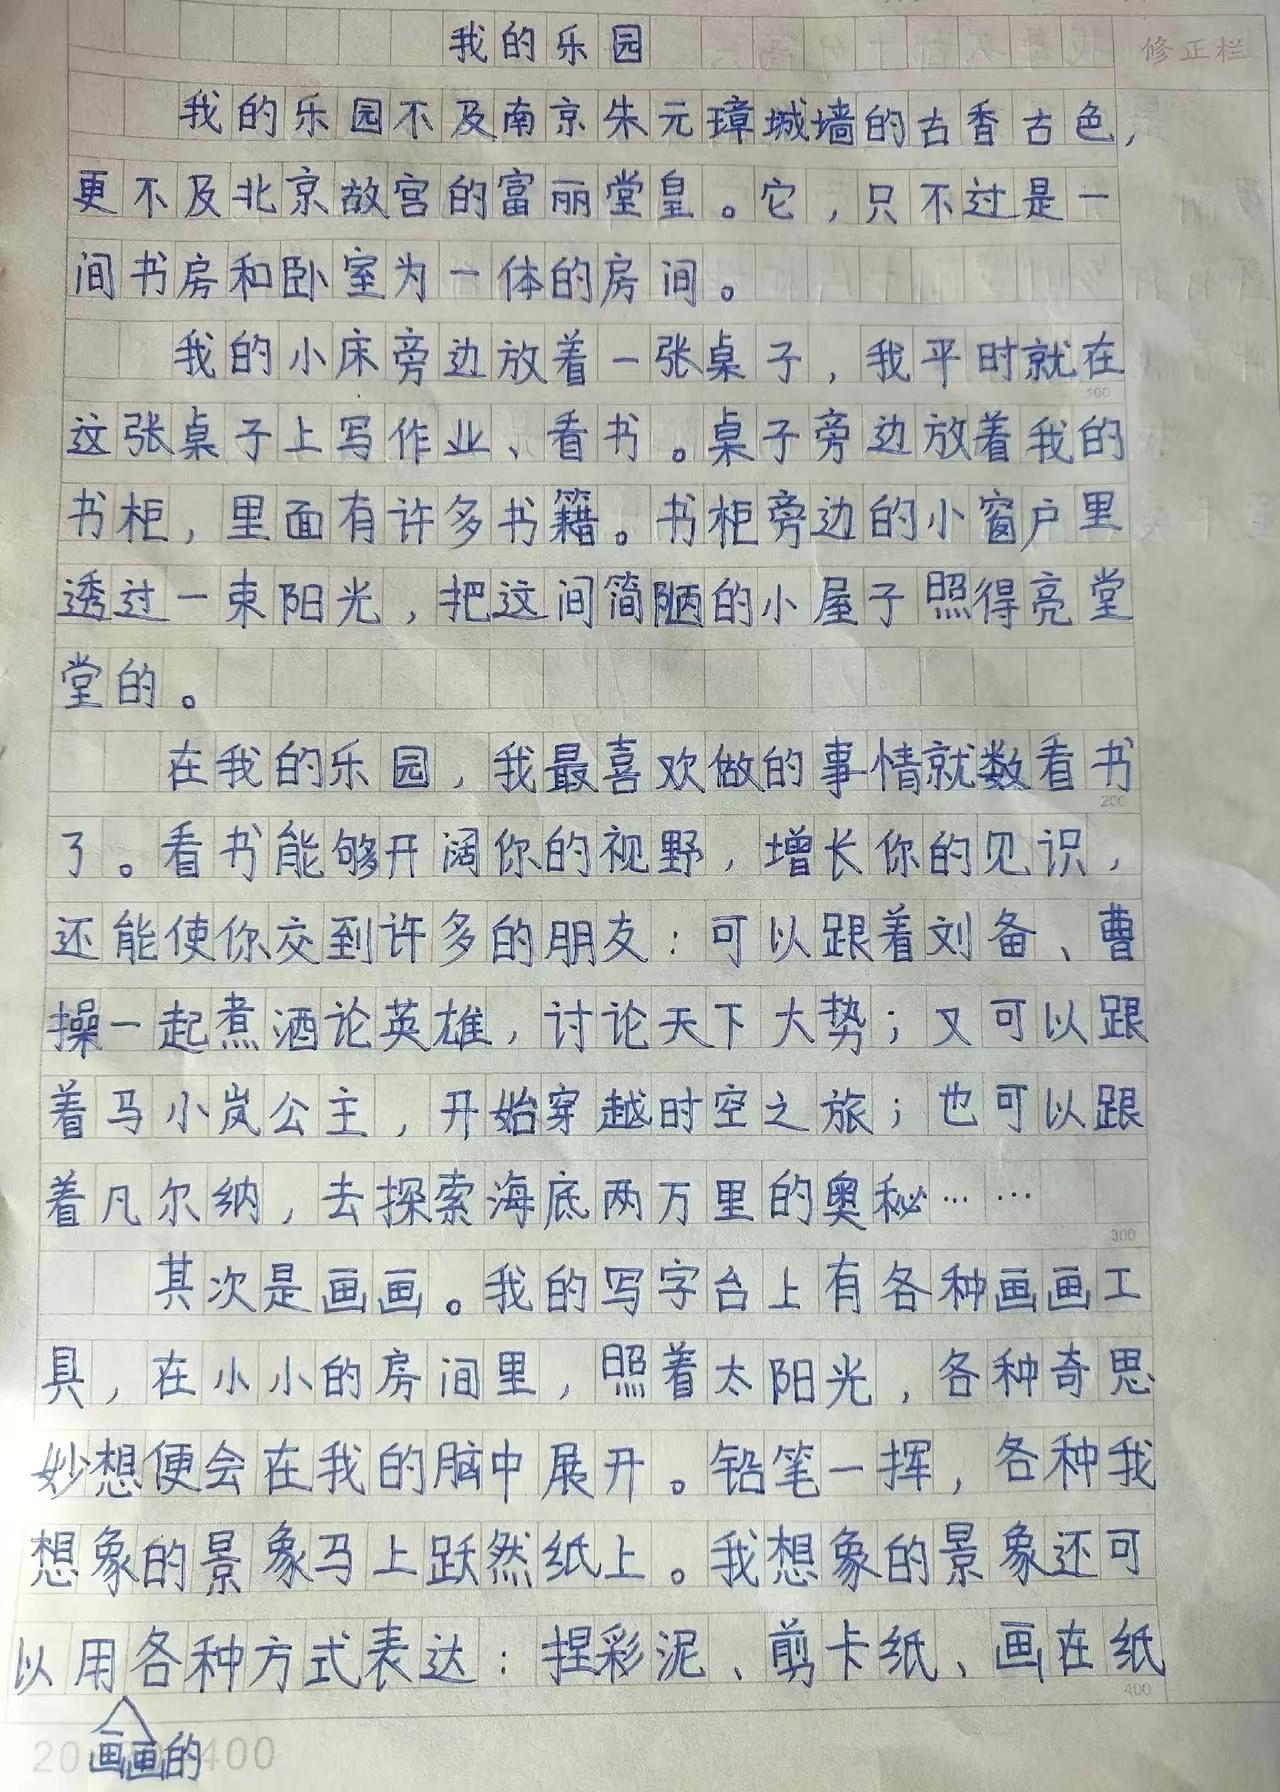 我的乐园
修正栏
我的乐园不及南京朱元璋城墙的古香古色，
更不及北京故宫的富丽堂皇。它，只不过是一
间书房和卧室为一体的房间。
我的小床旁边放着一张桌子，我平时就在
100
这张桌子上写作业、看书。桌子旁边放着我的
书柜，里面有许多书籍。书柜旁边的小窗户里
透过一束阳光，把这间简陋的小屋子照得亮堂
堂的。
在我的乐园，我最喜欢做的事情就数看书
200
了。看书能够开阔你的视野，增长你的见识，
还能使你交到许多的朋友：可以跟着刘备、曹
操一起煮酒论英雄，讨论天下大势；又可以跟
着马小岚公主，开始穿越时空之旅；也可以跟
着凡尔纳，去探索海底两万里的奥秘……
300
其次是画画。我的写字台上有各种画画工
具，在小小的房间里，照着太阳光，各种奇思
妙想便会在我的脑中展开。铅笔一挥，各种我
想象的景象马上跃然纸上。我想象的景象还可
以用各种方式表达：捏彩泥、剪卡纸、画在纸
400
画画的
400